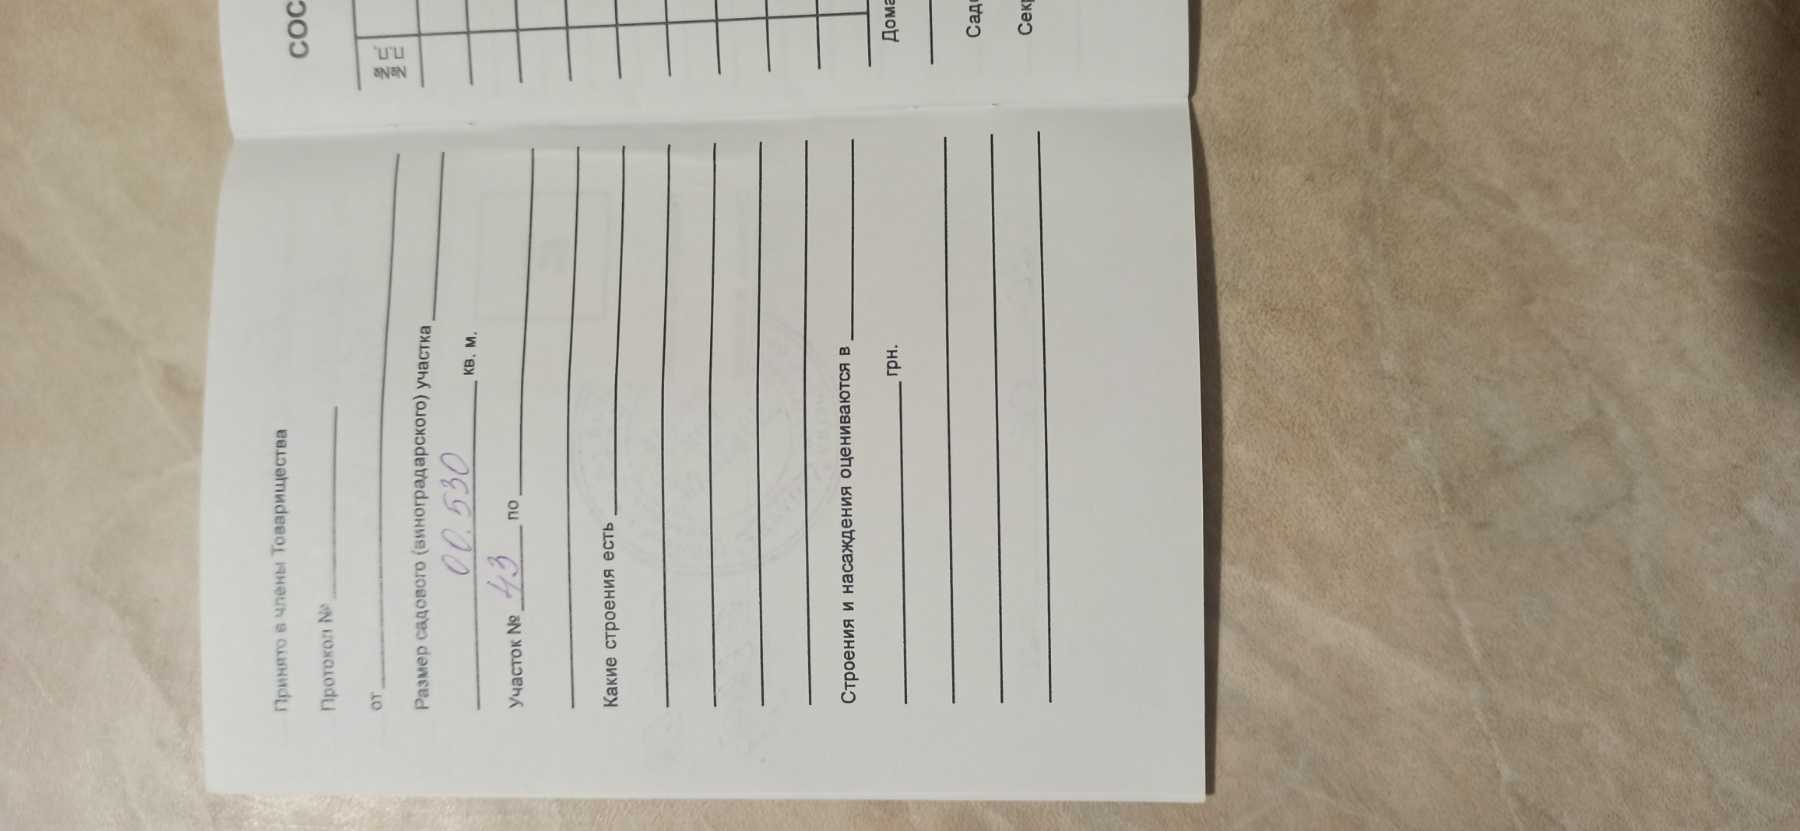 Принято в члены Товарищества
Протокол №
от
Размер садового (виноградарского) участка
00.530 кв. м.
Участок № 43 по
Какие строения есть
Строения и насаждения оцениваются в
грн.
СОС
№№
п.п.
Дома
Садо
Секр